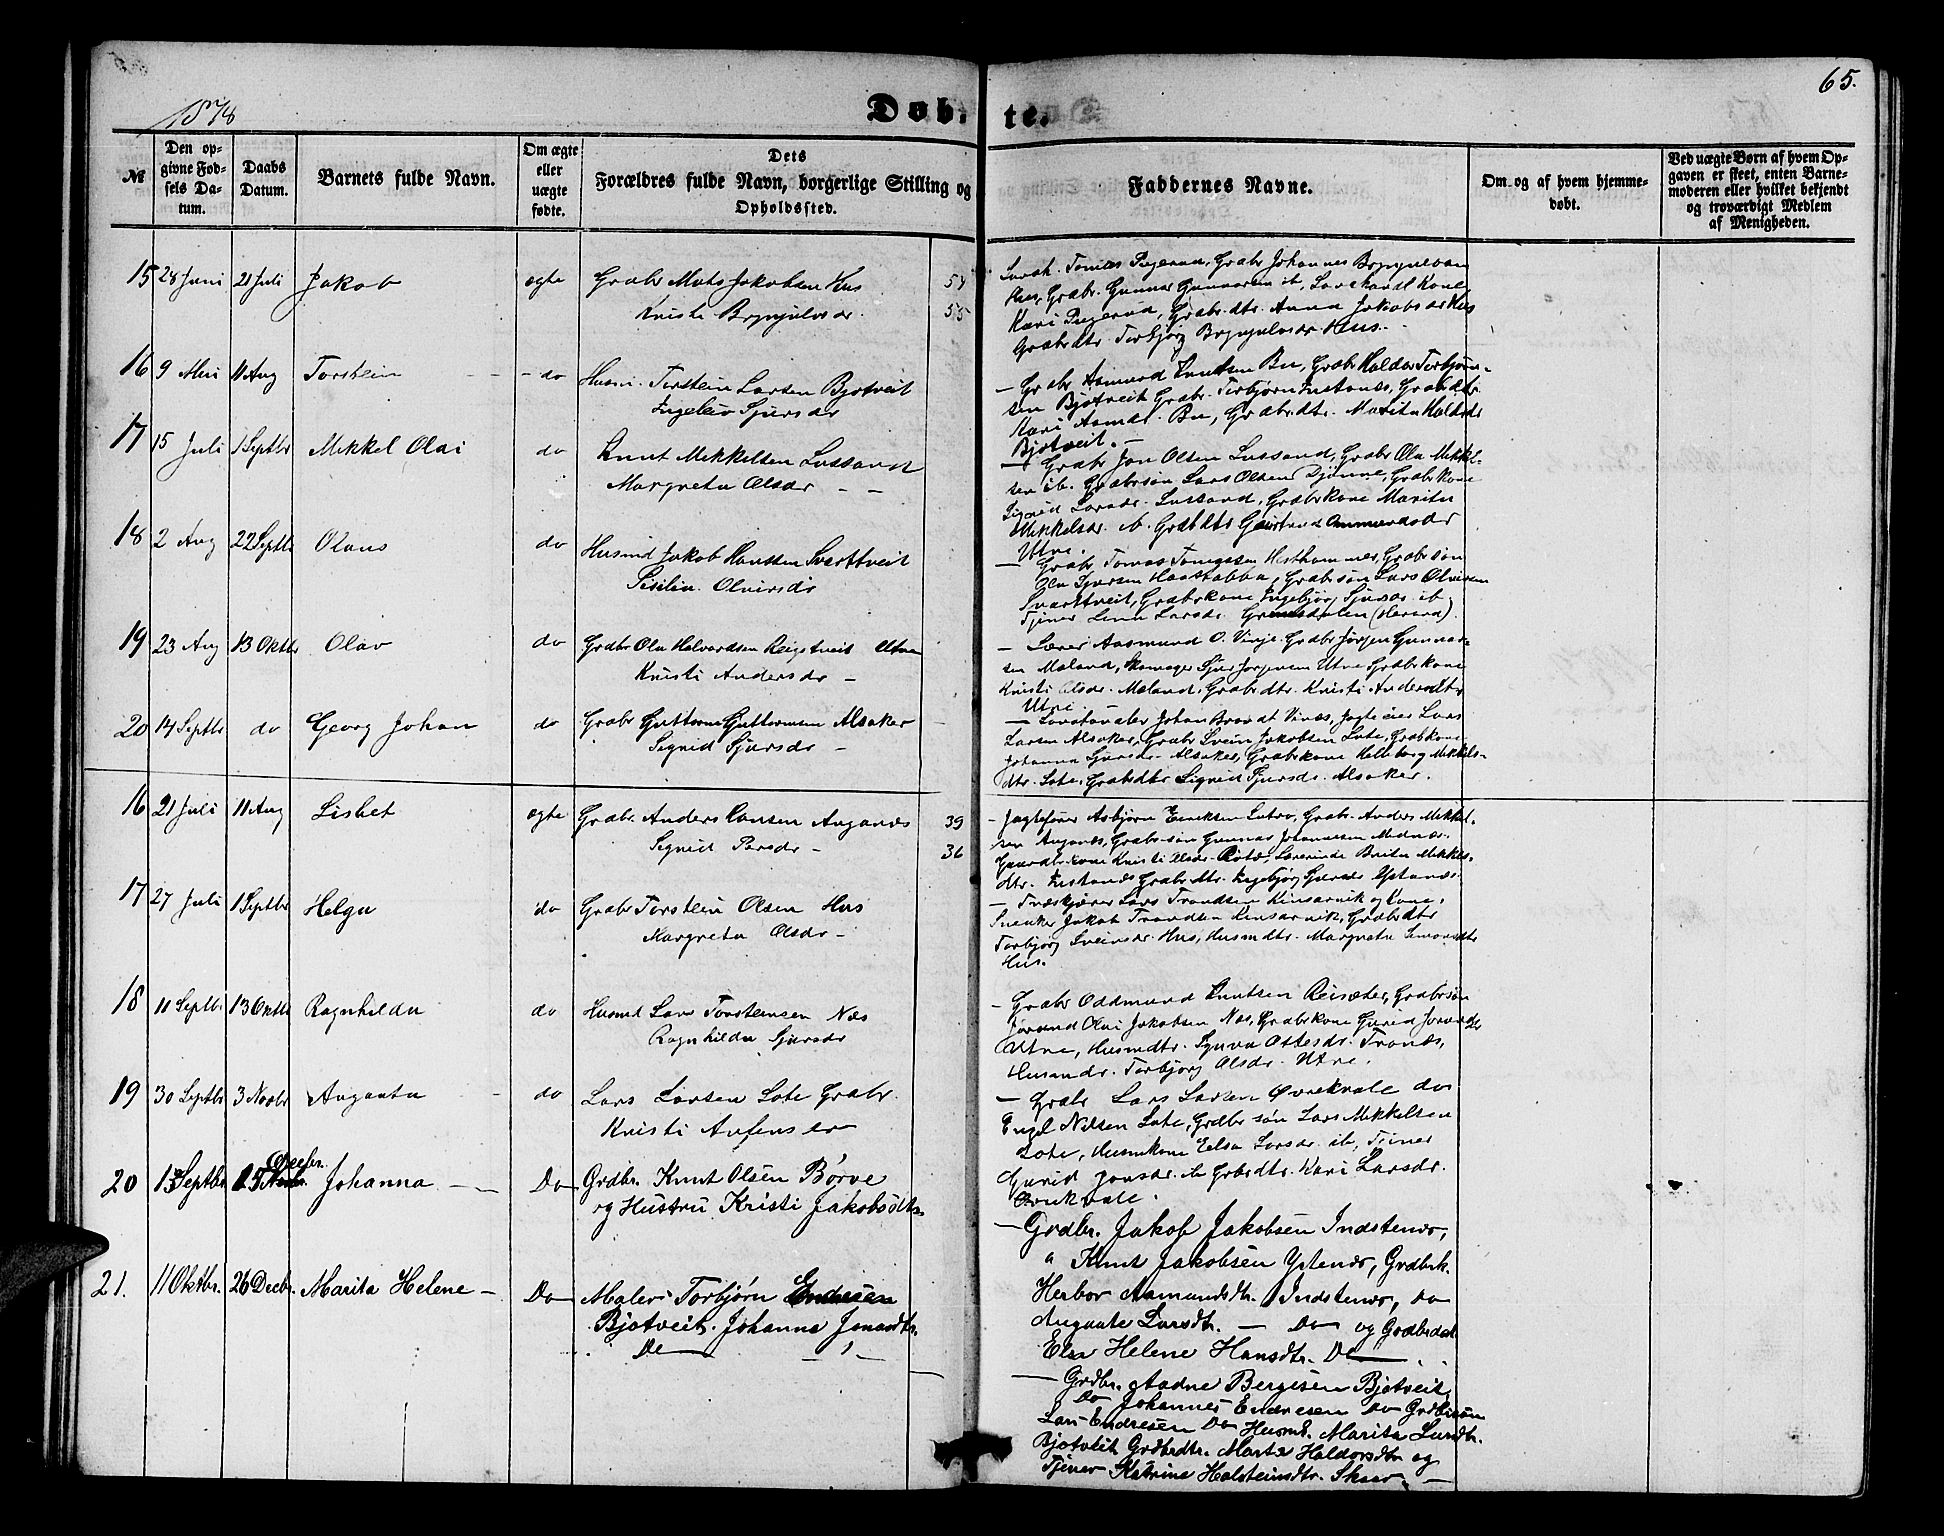 1878
Døb-te.
65.
№
Den opgivne Fødsels Datum.
Daabs Datum.
Barnets fulde Navn.
Om ægte eller uægte fødte.
Dets Forældres fulde Navn, borgerlige Stilling og Opholdssted.
Faddernes Navne.
Om og af hvem hjemmedøbt.
Ved uægte Børn af hvem Opgaven er skeet, enten Barnemoderen eller hvilket bekjendt og troværdigt Medlem af Menigheden.
15 28 Juni 21 Juli Jakob ægte Grabr Mats Jakobsen Hus 54
Kristi Brynjulvsdr. 55
Grabr Johannes Brynjulvsen
Hus, Grabr. Gunnar Gunnarsen ib, Kone
Kari Grabr.dtr. Anna Jakobsdr Hus
Grabrdtr. Torbjørg Brynjulvsdr Hus.
16 9 Mai 11 Aug Torstein do Husm. Torstein Larsen Bjotveit
Ingeleiv Sjursdr
Grabr Asmund Knutsen Bu, Grabr Haldor Torbjørn-
sen Bjotveit Grabr. Torbjørn Instanæs, Grabrdtr.
Kari Asmdr. Bu, Grabrdtr. Marita Haldsdr
Bjotveit.
17 15 Juli 1 Septbr Mikkel Olai do Knut Mikkelsen Lussand
Margreta Olsdr
Grabr Jon Olsen Lussand, Grabr Ola Mikkel-
sen ib. Grabrsøn Lars Olsen Djønne, Grabrkone
Sigrid Larsdr. Lussand, Grabrkone Marita
Mikkelsdr. ib. Grabrdtr
Utne.
18 2 Aug 22 Septbr Olaus do Husmd Jakob Hansen Svarttveit
Sisilia Olvirsdr
Grabr Tomas Tomassen Hesthammer, Grabrsøn
Ola Sjursen Haastabbø, Grabrsøn Lars Olvirsen
Svarttveit, Grabrkone Ingebjørg Sjursdr ib
Tjener Larsdr.
19 23 Aug 13 Oktbr Olav do Grabr Ola Halvardsen Reigstveit Utne
Kristi Andersdr
Lærer Aasmund O. Vinje, Grabr Jørgen Gunnar-
sen Mæland, Skomager Sjur Jørgensen Utne Grabrkone
Kristi Olsdr. Mæland, Grabrdtr. Kristi Andersdtr
Utne.
20 14 Septbr do Georg Johan do Grabr Guttorm Guttormsen Alsaker
Sigrid Sjursdr
Johan Brandt Vines, Jagteier Lars
Larsen Alsaker, Grabr Svein Jakobsen Lote, Grabrkone
Johanna Sjursdr. Alsaker, Grabrkone Mikkels-
dtr. Lote, Grabrdtr Sigrid Sjursdr. Alsaker.
16 21 Juli 11 Aug Lisbet ægte Grabr. Anders Hansen Auganæs 39
Sigrid Larsdr 36
Jagtefører Asbjørn Eiriksen Lutro, Grabr. Anders Mikkel-
sen Auganæs, Grabrsøn Gunnar Johannesen
Kristi Olsdr. Lærerinde Brita Mikkels-
dtr. Instanæs Grabrdtr. Ingebjørg
17 27 Juli 1 Septbr Helga do Grabr Torstein Olsen Hus
Margreta Olsdr
Lars Trondsen Kinsarvik og Kone,
Snedker Jakob Trondsen Kinsarvik, Grabrdtr
Torbjørg Sveinsdr. Hus, Husmdtr. Margreta Simonsdtr
Hus.
18 11 Septbr 13 Oktbr Ragnhilda do Husmd Lars Torsteinsen Næs
Ragnhilda Sjursdr
Grabr Oddmund Knutsen Reisæter, Grabrsøn
Jørund Olai Jakobsen Næs, Grabrkone Gurid
Utne, Husmdtr. Synva Ottesdr. Tronæs,
Torbjørg Olsdr. Utne.
19 30 Septbr 3 Novbr Auganta do Lars Larsen Lote Grabr.
Kristi Anfensdr
Grabr Lars Larsen Øvrekvale do
Engel Nilsen Lote, Grabrsøn Lars Mikkelsen
Lote, Husmkone Eilsa Larsdr. ib, Tjener
Gurid Jonsdr. ib Grabrdtr. Kari Larsdr.
Øvrekvale.
20 13 Septbr 25 Decbr. Johanna Do Grdbr. Knut Olsen Børve
og Hustru Kristi Jakobsdtr.
Grdbr. Jakob Jakobsen Indstenæs,
" Knut Jakobsen Ystenæs, Grdbrk.
Herbor Aamundsdtr. Indstenæs, do
Augaate Larsdtr. — Do — og Grdbrdat.
Elsa Helene Hansdtr. Do
21. 11 Oktbr. 26 Decbr. Marita Helene Do Maler Torbjørn Endresen
Bjotveit. Johanna Jonasdtr.
Do
Grdbr. Aadne Bergesen Bjotveit,
Do Johannes Endresen Do Grdbrsøn
Lars Endresen Do Husmk. Marita Larsdtr.
Bjotveit Grdbrdtr. Marta Haldorsdtr og
Tjener Katrine Halsteinsdtr. Skaar.